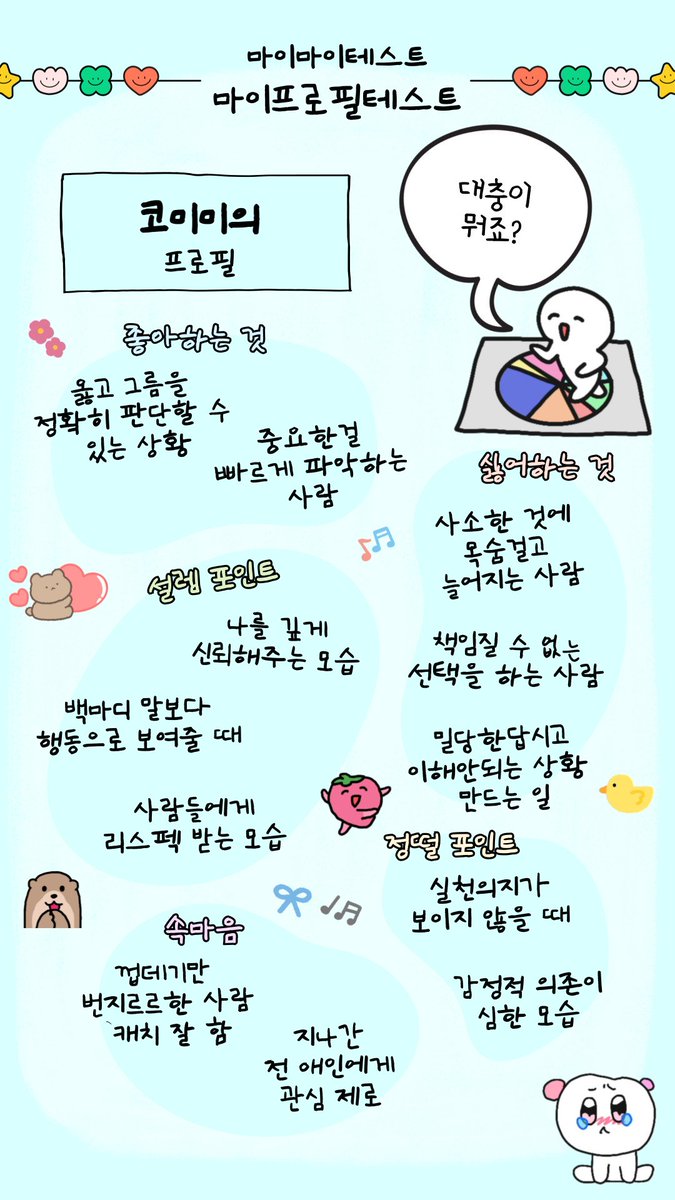 마이마이테스트
마이프로필테스트
코미미의
프로필
대충이
뭐죠?
좋아하는 것
옳고 그름을
정확히 판단할 수
있는 상황
중요한걸
빠르게 파악하는
사람
싫어하는 것
사소한 것에
목숨걸고
늘어지는 사람
책임질 수 없는
선택을 하는 사람
밀당한답시고
이해안되는 상황
만드는 일
설렘 포인트
나를 깊게
신뢰해주는 모습
백마디 말보다
행동으로 보여줄 때
사람들에게
리스펙 받는 모습
정떨 포인트
실천의지가
보이지 않을 때
감정적 의존이
심한 모습
속마음
껍데기만
번지르르한 사람
캐치 잘 함
지나간
전 애인에게
관심 제로